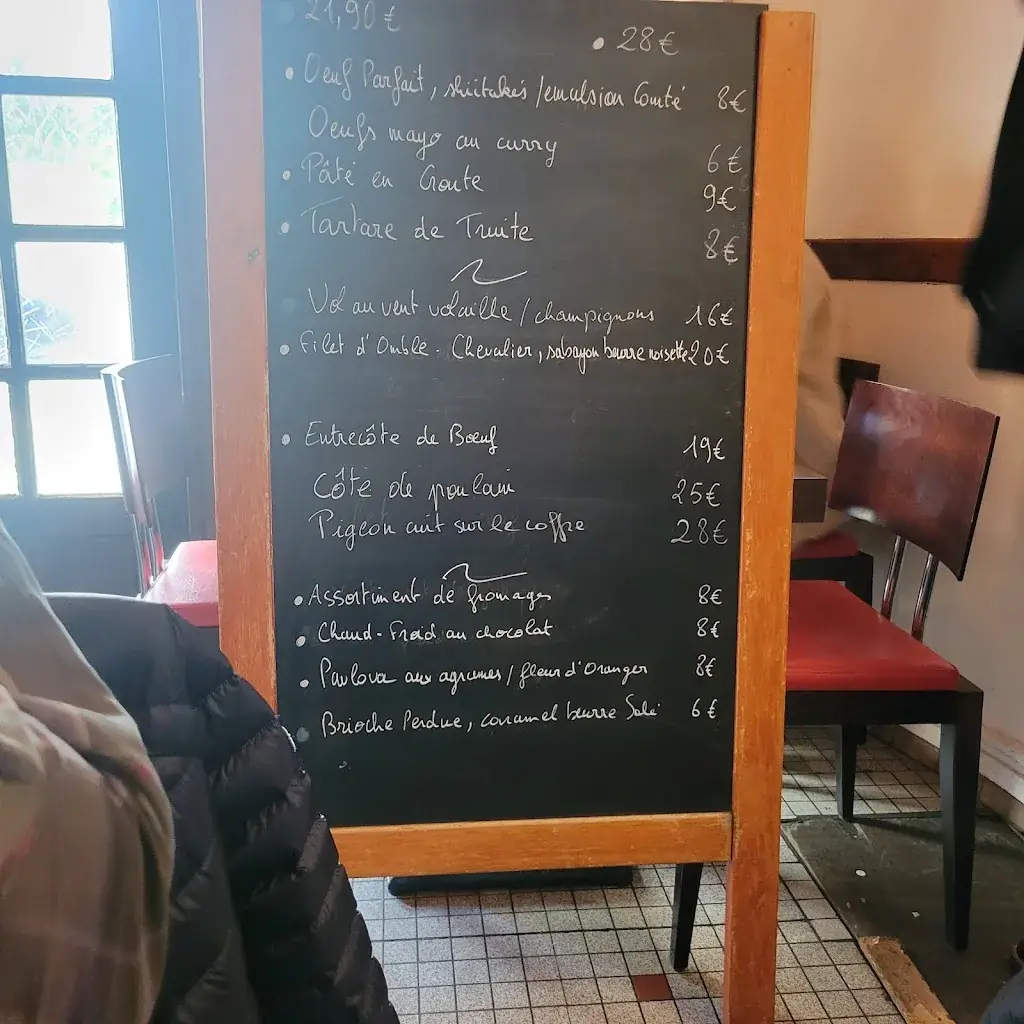 21,90 €
• 28€
• Oeuf Parfait, shiitakés /emulsion Comté 8€
Oeufs mayo au curry 6€
• Pâté en Croute 9€
• Tartare de Truite 8€
Vol au vent volaille / champignons 16€
• Filet d'Omble. Chevalier, sabayon beurre noisette 20€
• Entrecôte de Bœuf 19€
Côte de poulain 25€
Pigeon cuit sur le coffre 28€
• Assortiment de fromages 8€
• Chaud-Froid au chocolat 8€
• Pavlova aux agrumes / fleur d'Oranger 8€
• Brioche Perdue, caramel beurre Salé 6€